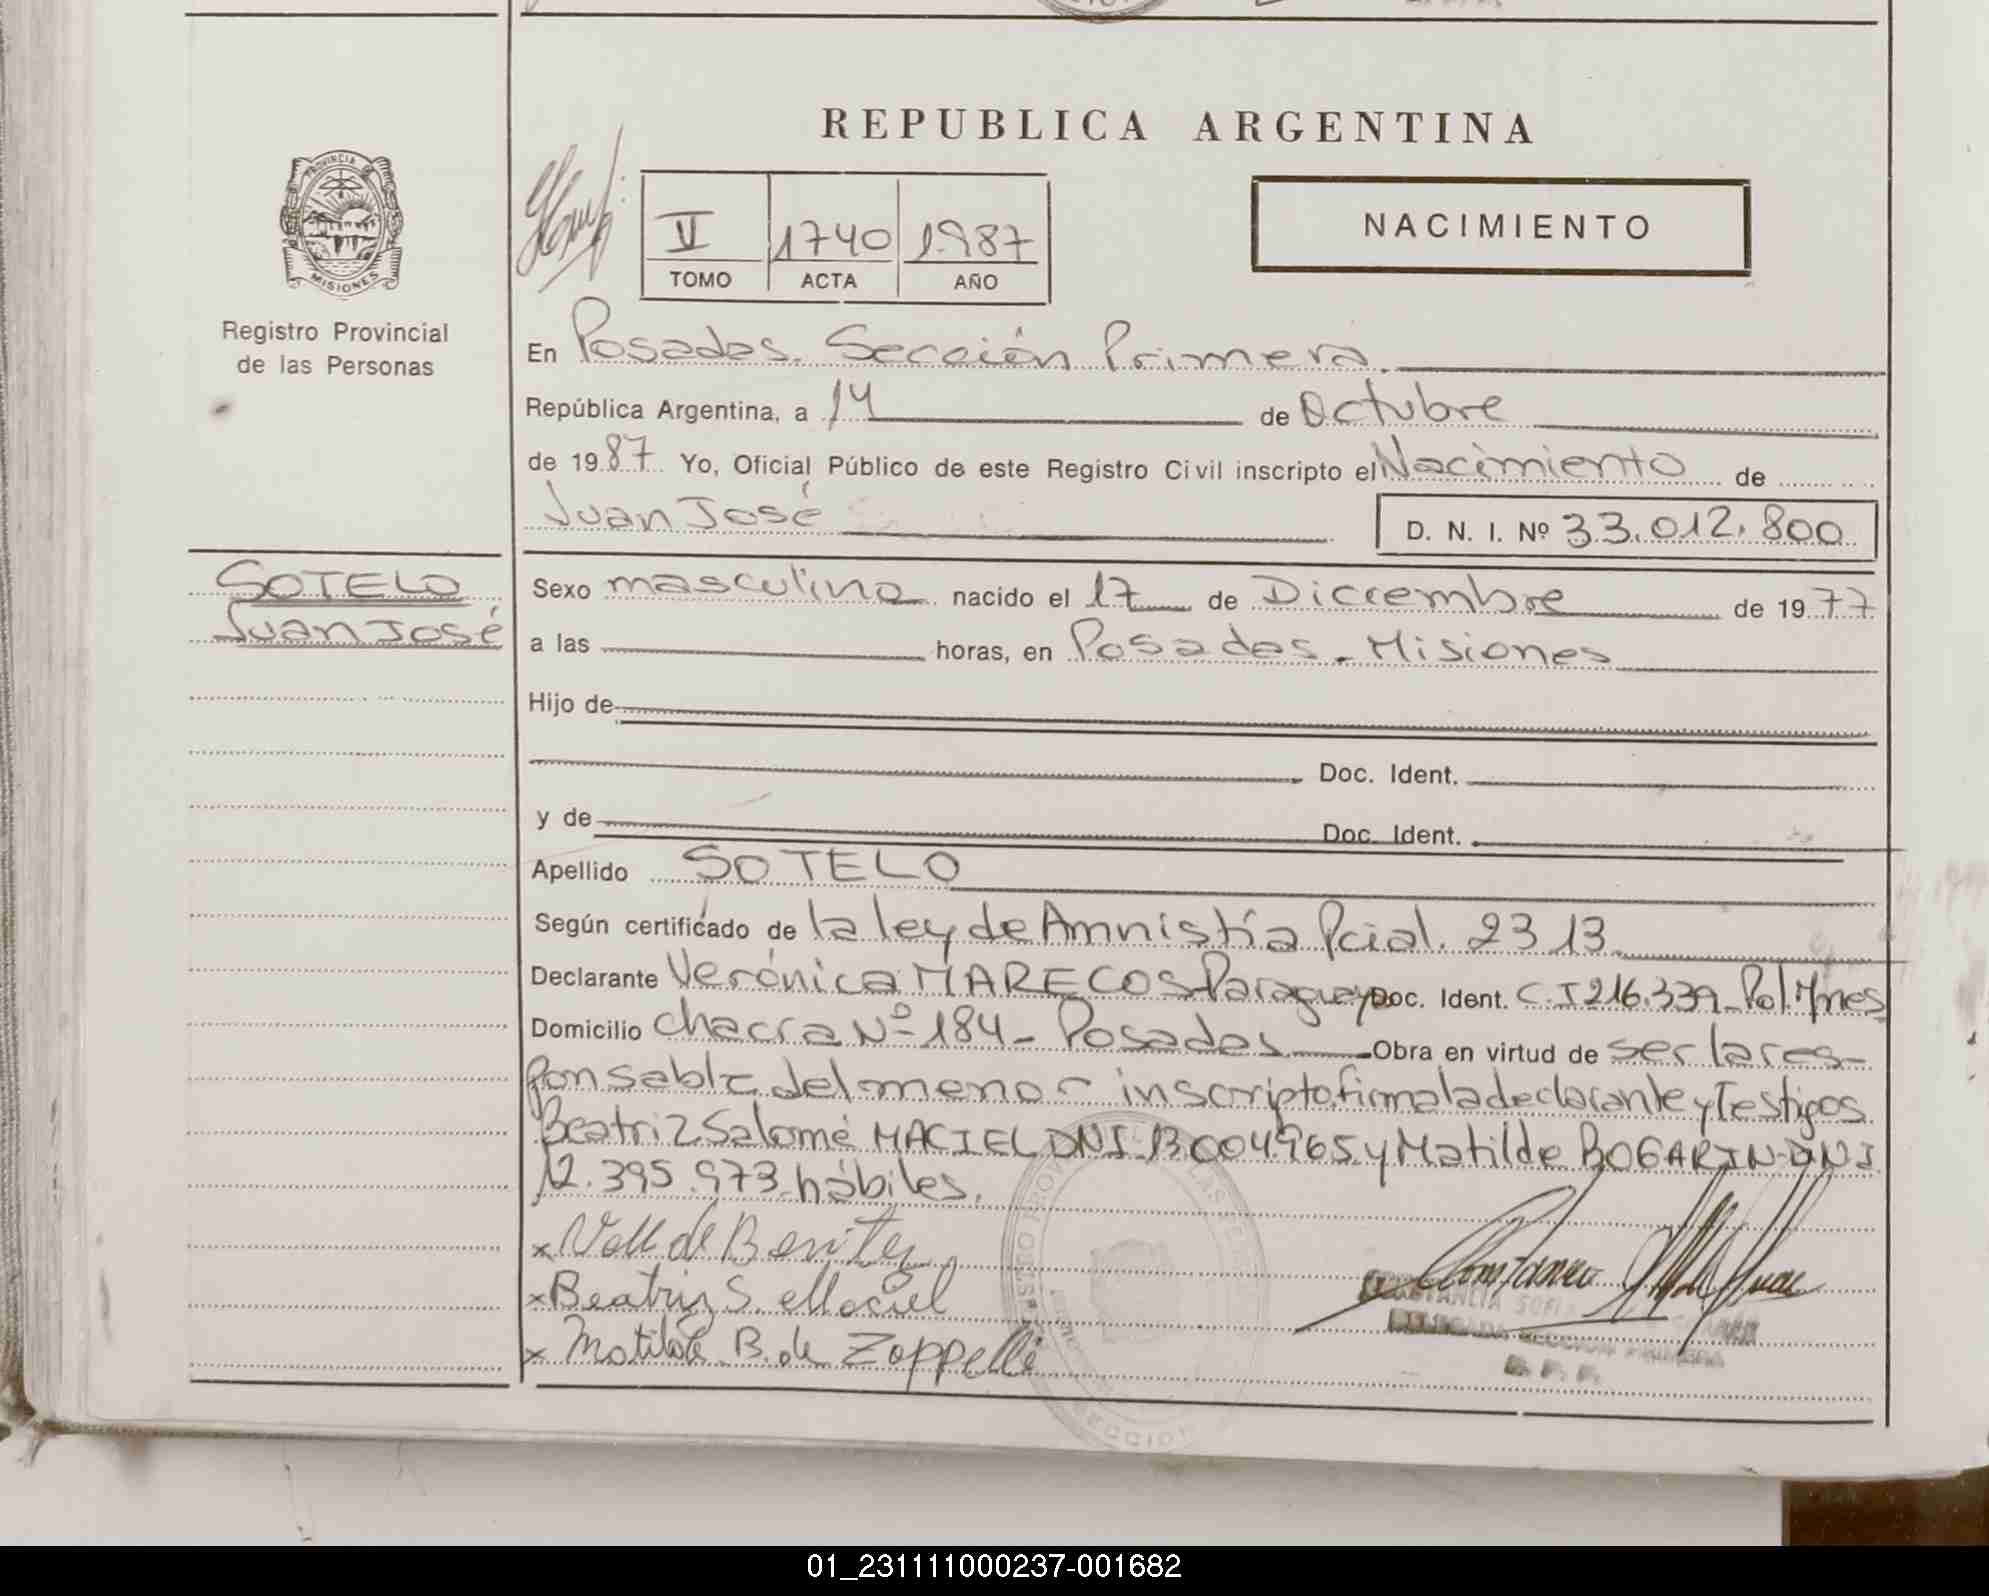 REPUBLICA ARGENTINA
PROVINCIA DE
MISIONES
Registro Provincial
de las Personas
V 1740 1987
TOMO ACTA AÑO
NACIMIENTO
En Posadas. Sección Primera.
República Argentina, a 14 de Octubre
de 1987 Yo, Oficial Público de este Registro Civil inscripto el Nacimiento de
Juan José D. N. I. Nº 33.012.800
SOTELO
Juan José
Sexo masculino nacido el 17 de Diciembre de 1977
a las horas, en Posadas. Misiones
Hijo de
Doc. Ident.
y de Doc. Ident.
Apellido SOTELO
Según certificado de la ley de Amnistía Pcial. 2313
Declarante Verónica MARECOS Paraguaya Doc. Ident. C.I 216.339 Pol. Mnes
Domicilio chacra Nº 184 - Posadas Obra en virtud de ser la res-
ponsable del menor inscripto, firma la declarante y Testigos
Beatriz Salomé MACIEL DNI 13.004.965 y Matilde BOGARIN DNI
12.395.973 hábiles.
x V de Benitez
x Beatriz S. Maciel
x Matilde B. de Zoppelli
DELEGADA SECCION PRIMERA
R. P. P.
01_231111000237-001682